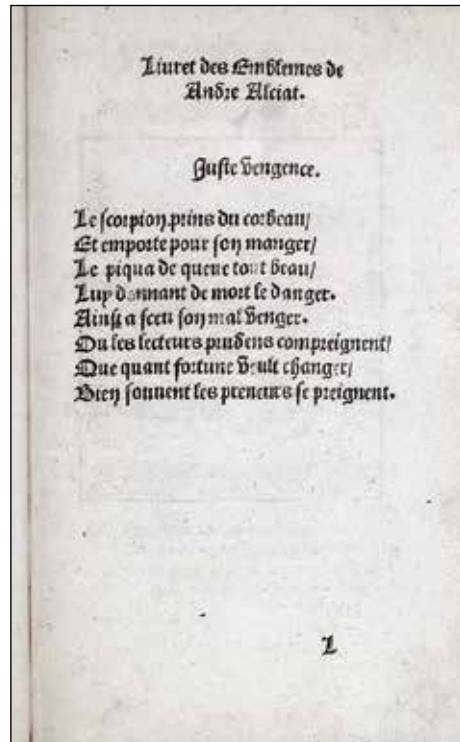 Liuret des Emblemes de
Andre Alciat.
Juste vengence.
Le scorpion prins du corbeau/
Et emporte pour son manger/
Le piqua de queue tout beau/
Luy donnant de mort le danger.
Ainsi a sceu son mal venger.
Ou les lecteurs prudens compreignent/
Que quant fortune veult changer/
Bien souuent les preneurs se preignent.
L